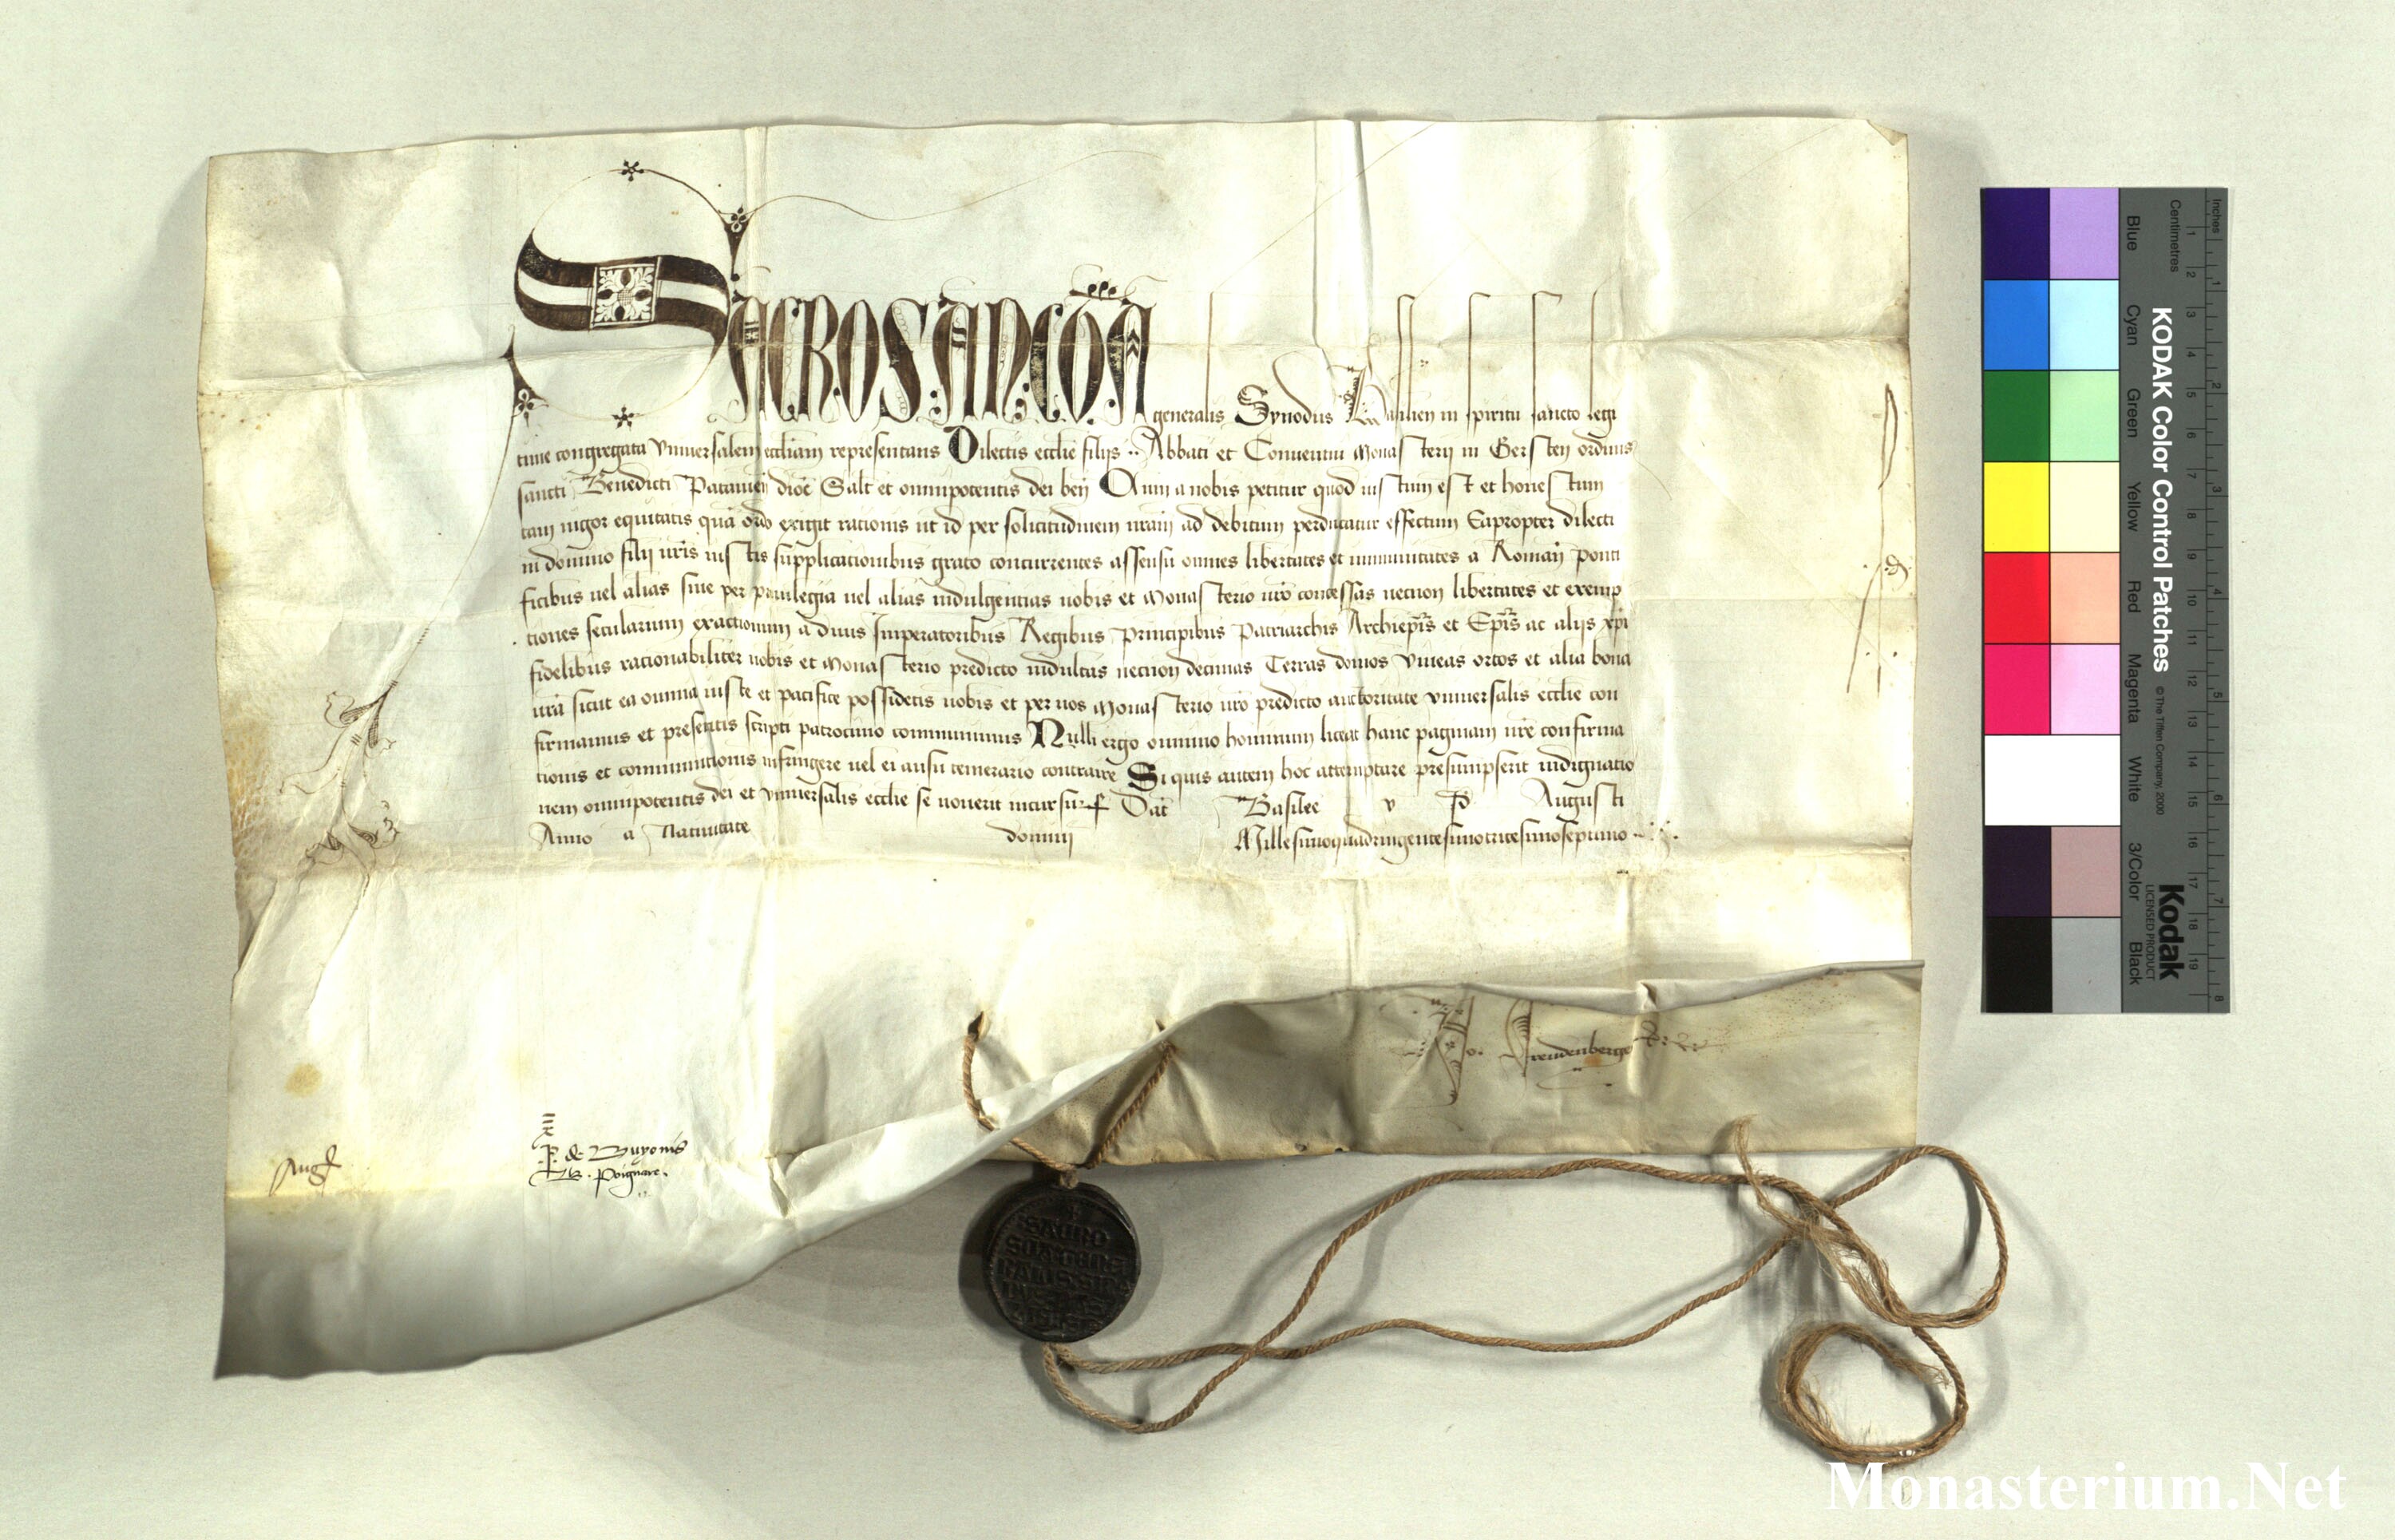 SACROSANCTA generalis Synodus Basilien in spiritu sancto legi
time congregata vniuersalem eccliam representans Dilectis ecclie filijs .. Abbati et Conuentui Monasterij in Gersten ordinis
sancti Benedicti Patauien dioc Salt et omnipotentis dei ben Cum a nobis petitur quod iustum est et honestum
tam uigor equitatis qua ordo exigit rationis ut id per solicitudinem nram ad debitum perducatur effectum Eapropter dilecti
in domino filij uris iustis supplicationibus grato concurrentes assensu omnes libertates et immunitates a Roman ponti
ficibus uel alias siue per priuilegia uel alias indulgentias uobis et Monasterio uro concessas necnon libertates et exemp
tiones secularium exactionum a diuis Imperatoribus Regibus Principibus Patriarchis Archiepis et Epis ac alijs xpi
fidelibus rationabiliter uobis et Monasterio predicto indultas necnon decimas Terras domos Vineas ortos et alia bona
ura sicut ea omnia iuste et pacifice possidetis uobis et per uos Monasterio uro predicto auctoritate vniuersalis ecclie con
firmamus et presentis scripti patrocinio communimus Nulli ergo omnino hominum liceat hanc paginam nre confirma
tionis et communitionis infringere uel ei ausu temerario contraire Si quis autem hoc attemptare presumpserit indignatio
nem omnipotentis dei et vniuersalis ecclie se nouerit incursur Dat Basilee Augusti
Anno a Natiuitate domini Millesimoquadringentesimotricesimoseptimo
Freudenberger
P. de
Poignare.
Aug
SACRO
KODAK Color Control Patches
© The Tiffen Company, 2000
Kodak
LICENSED PRODUCT
Inches
1 2 3 4 5 6 7 8
Centimetres
1 2 3 4 5 6 7 8 9 10 11 12 13 14 15 16 17 18 19
Blue
Cyan
Green
Yellow
Red
Magenta
White
3/Color
Black
Monasterium.Net